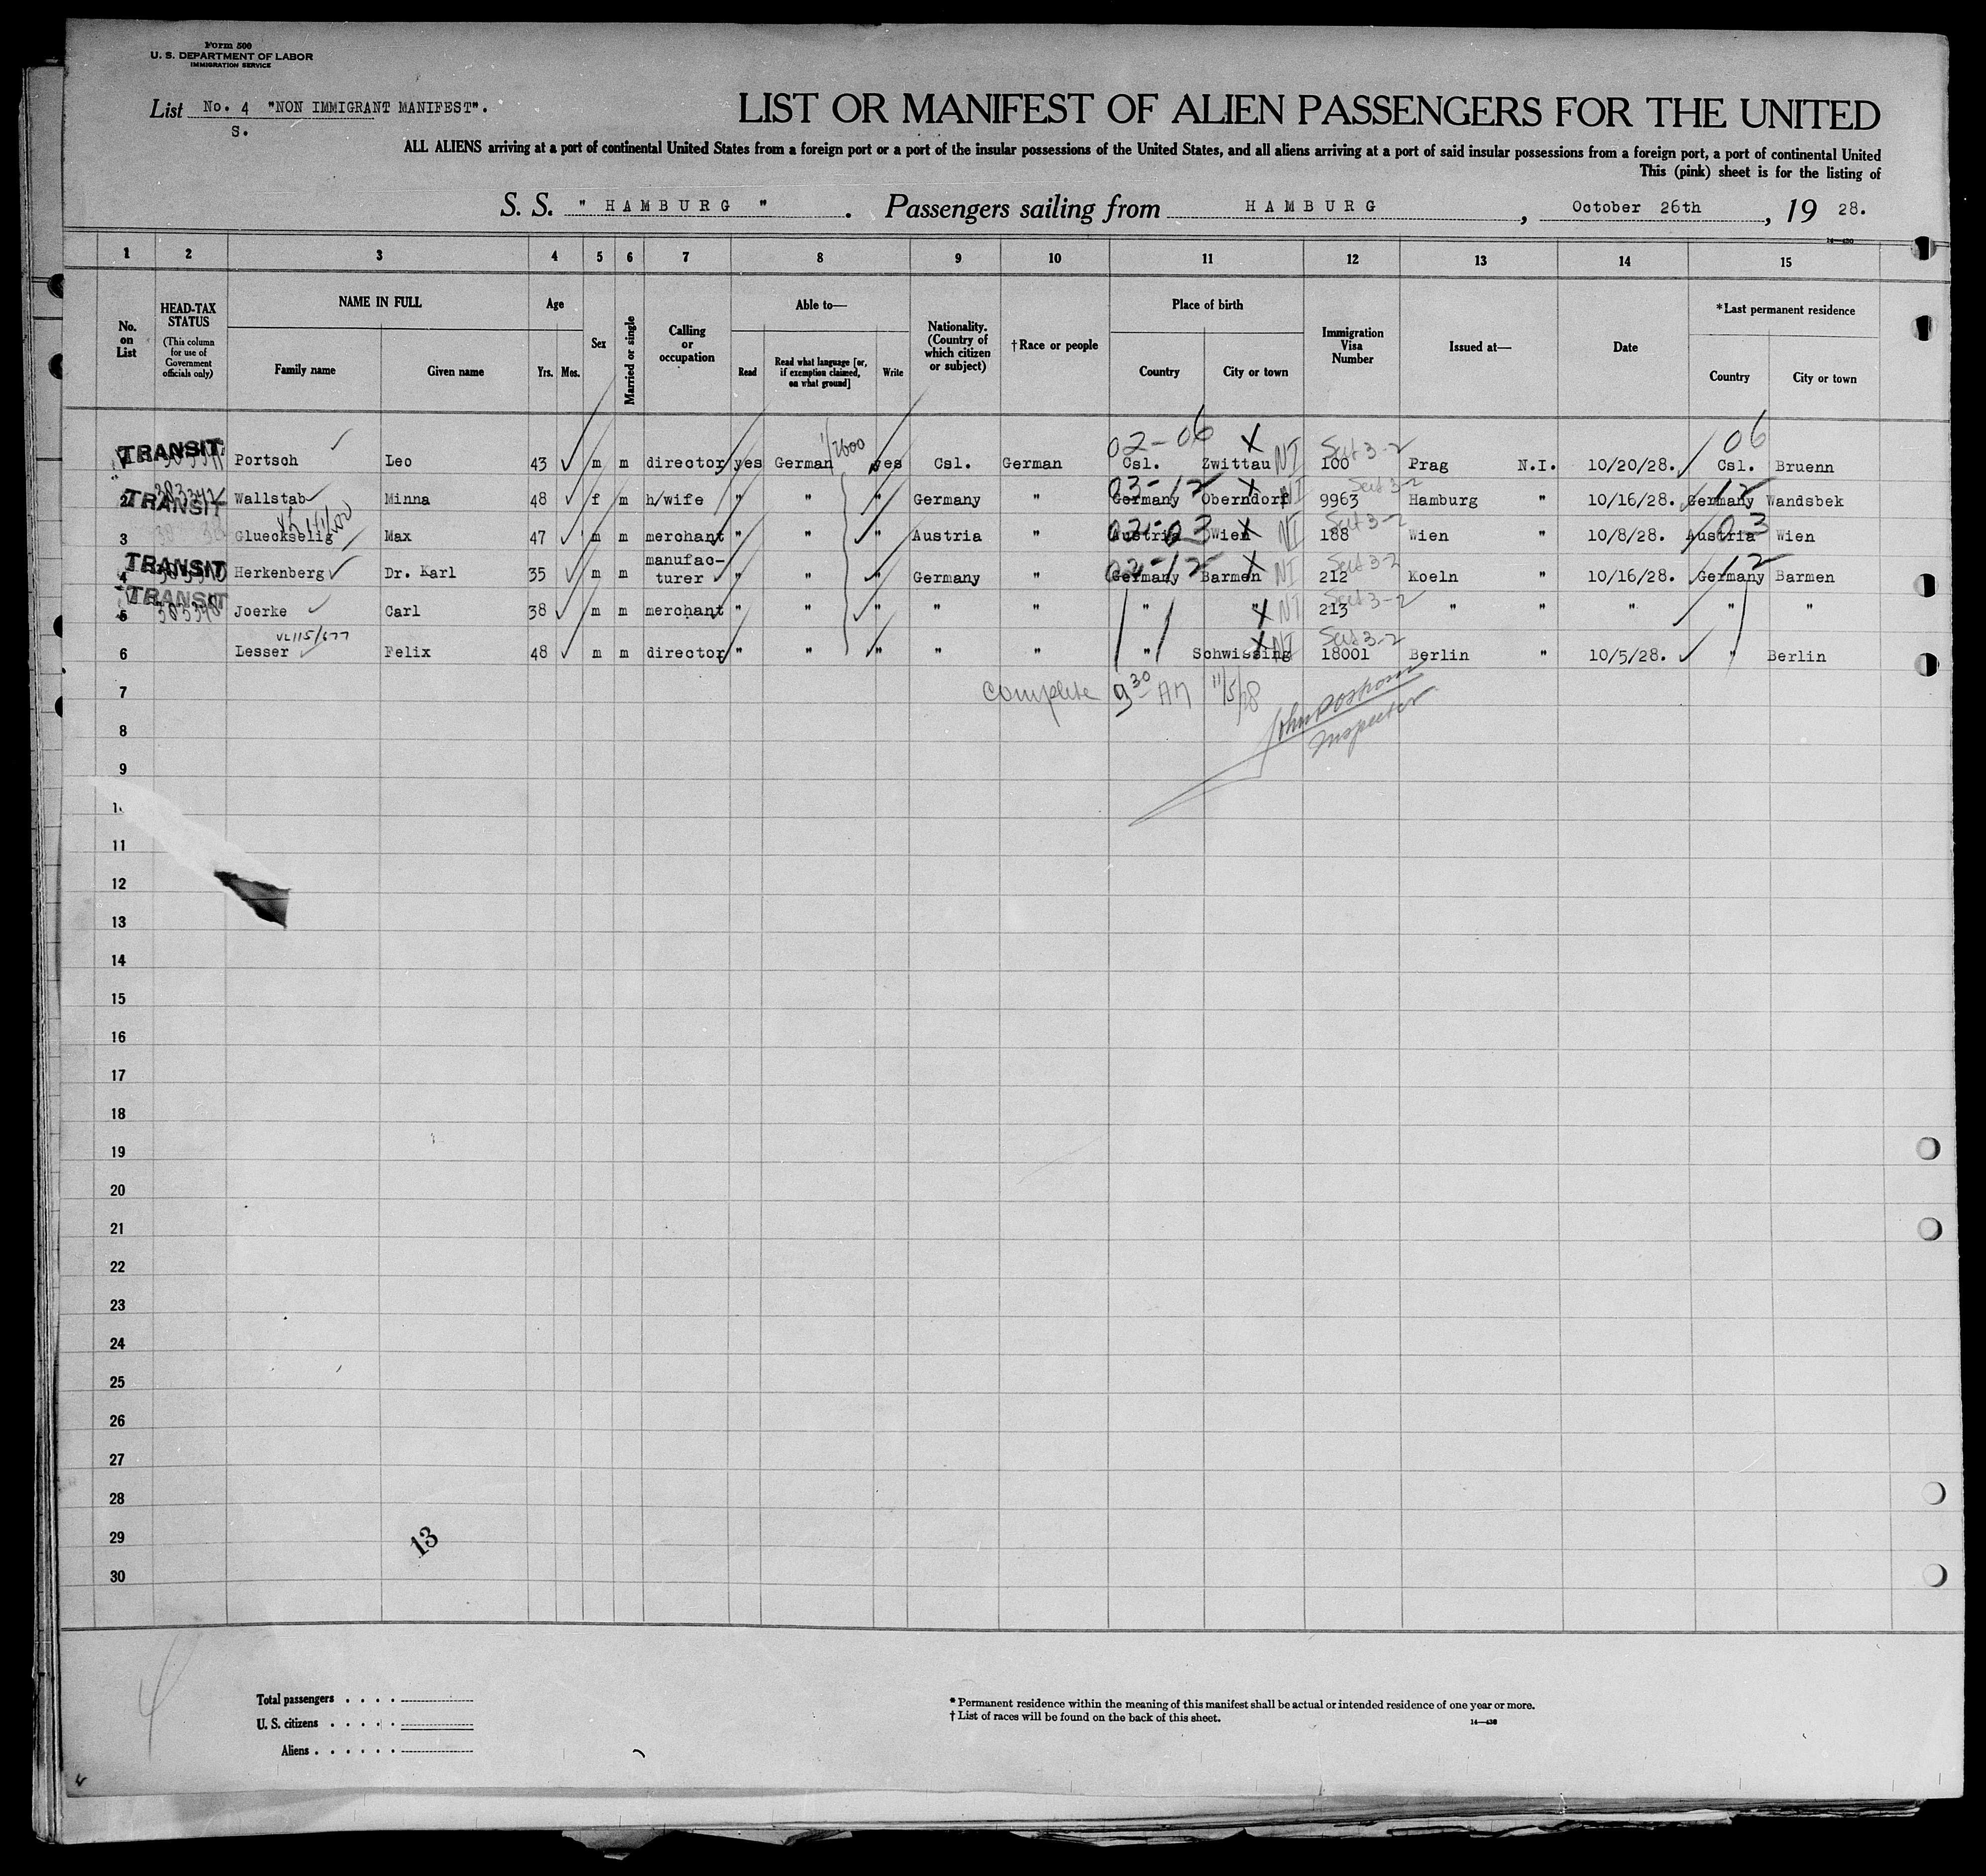 Form 500
U. S. DEPARTMENT OF LABOR
IMMIGRATION SERVICE
List No. 4 "NON IMMIGRANT MANIFEST".
S.
LIST OR MANIFEST OF ALIEN PASSENGERS FOR THE UNITED
ALL ALIENS arriving at a port of continental United States from a foreign port or a port of the insular possessions of the United States, and all aliens arriving at a port of said insular possessions from a foreign port, a port of continental United
This (pink) sheet is for the listing of
S. S. " HAMBURG " . Passengers sailing from HAMBURG , October 26th , 19 28.
1 2 3 4 5 6 7 8 9 10 11 12 13 14 15
No. on List
HEAD-TAX STATUS
(This column for use of Government officials only)
NAME IN FULL
Family name Given name
Age
Yrs. Mos.
Sex
Married or single
Calling or occupation
Able to—
Read
Read what language [or, if exemption claimed, on what ground]
Write
Nationality. (Country of which citizen or subject)
† Race or people
Place of birth
Country City or town
Immigration Visa Number
Issued at—
Date
*Last permanent residence
Country City or town
02-06 X NI Sect 3-2 06
1 TRANSIT Portsch Leo 43 m m director yes German yes Csl. German Csl. Zwittau 100 Prag N.I. 10/20/28. Csl. Bruenn
03-12 X NI Sect 3-2 12
2 TRANSIT Wallstab Minna 48 f m h/wife " " " Germany " Germany Oberndorf 9963 Hamburg " 10/16/28. Germany Wandsbek
02-03 X NI Sect 3-2 03
3 Glueckselig Max 47 m m merchant " " " Austria " Austria Wien 188 Wien " 10/8/28. Austria Wien
02-12 X NI Sect 3-2 12
4 TRANSIT Herkenberg Dr. Karl 35 m m manufac-
turer " " " Germany " Germany Barmen 212 Koeln " 10/16/28. Germany Barmen
X NI Sect 3-2
5 TRANSIT Joerke Carl 38 m m merchant " " " " " " " 213 " " " " "
X NI Sect 3-2
6 Lesser Felix 48 m m director " " " " " " Schwissing 18001 Berlin " 10/5/28. " Berlin
7 complete 9 30 AM 11/5/28
Inspector
8
9
11
12
13
14
15
16
17
18
19
20
21
22
23
24
25
26
27
28
29
13
30
Total passengers . . . .
U. S. citizens . . . . .
Aliens . . . . . .
* Permanent residence within the meaning of this manifest shall be actual or intended residence of one year or more.
† List of races will be found on the back of this sheet.